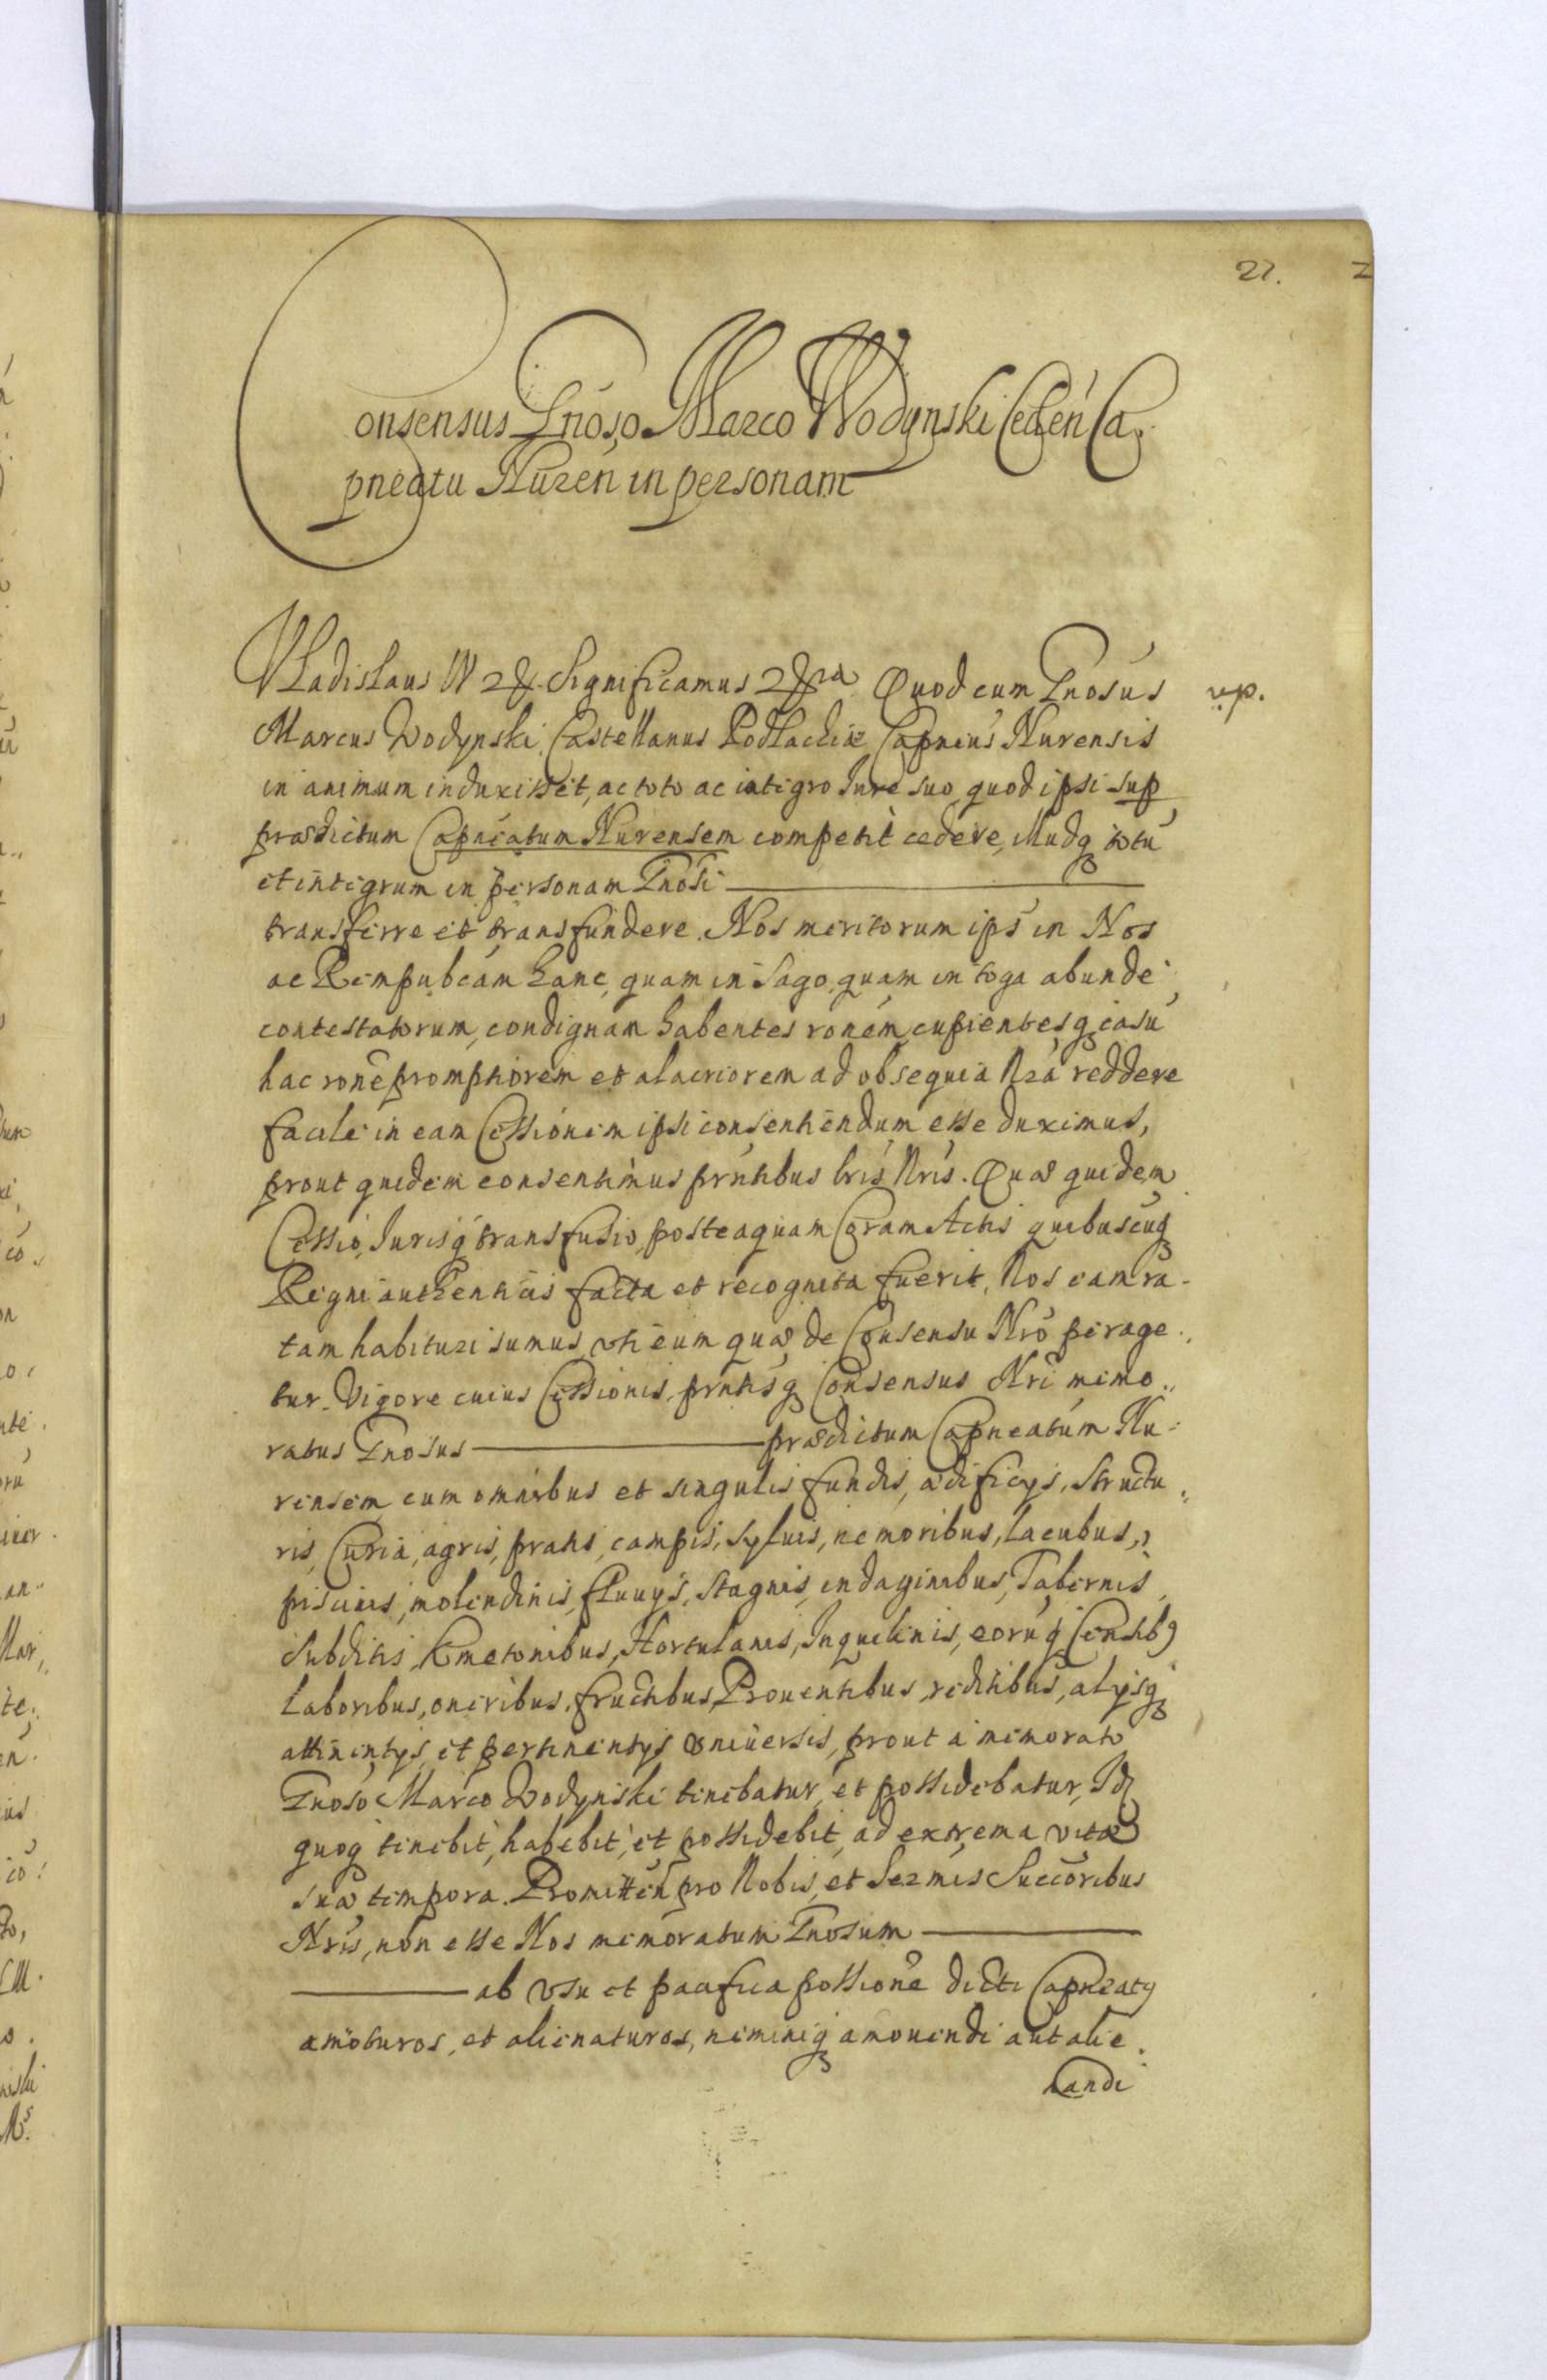 27.
Consensus Gnoso Marco Wodynski Ceden Ca,,
pneatu Nuren in personam
Vladislaus IV etc. Significamus etc. Quod cum Gnosus
up.
Marcus Wodynski Castellanus Podlachiæ Capneus Nurensis
in animum induxisset, ac toto ac integro Jure suo, quod ipsi sup
prædictum Capneatum Nurensem competit cedere, illudq totu
et integrum in personam Gnosi ———
transferre et transfundere. Nos meritorum ips in Nos
ac Rempubcam hanc, quam in Sago, quam in toga abunde
contestatorum, condignam habentes ronem, cupientesq easu
hac rone promptiorem et alacriorem ad obsequia Nra reddere
facile in eam Cessionem ipsi consentiendum esse duximus,
prout quidem consentimus prntibus lris Nris. Quæ quidem
Cessio, Jurisq transfusio, posteaquam Coram Actis quibuscuq
Regni authenticis facta et recognita fuerit, Nos eam ra-
tam habituri sumus, uti eum quæ de Consensu Nro perage,,
tur. Vigore cuius Cessionis, prntisq Consensus Nri memo,,
ratus Gnosus ——— prædictum Capneatum Nu-
rensem, cum omnibus et singulis fundis, ædificys, structu,,
ris, Curia, agris, pratis, campis, syluis, nemoribus, lacubus,
piscinis, molendinis, fluuys, stagnis, indaginibus, Tabernis,
Subditis, Kmetonibus, Hortulanis, Inquilinis, eoruq Censib9
laboribus, oneribus, fructibus, Prouentibus, reditibus, alysq
attinentys, et pertinentys vniuersis, prout a memorato
Gnoso Marco Wodynski tenebatur, et possidebatur, Id
quoq tenebit, habebit, et possidebit, ad extrema vitæ
suæ tempora. Promitten pro Nobis, et Sermis Succoribus
Nris, non esse Nos memoratum Gnosum ———
——— ab vsu et pacifica possione dicti Capneaty
amoturos, et alienaturos, neminiq amouendi aut alie.
nandi